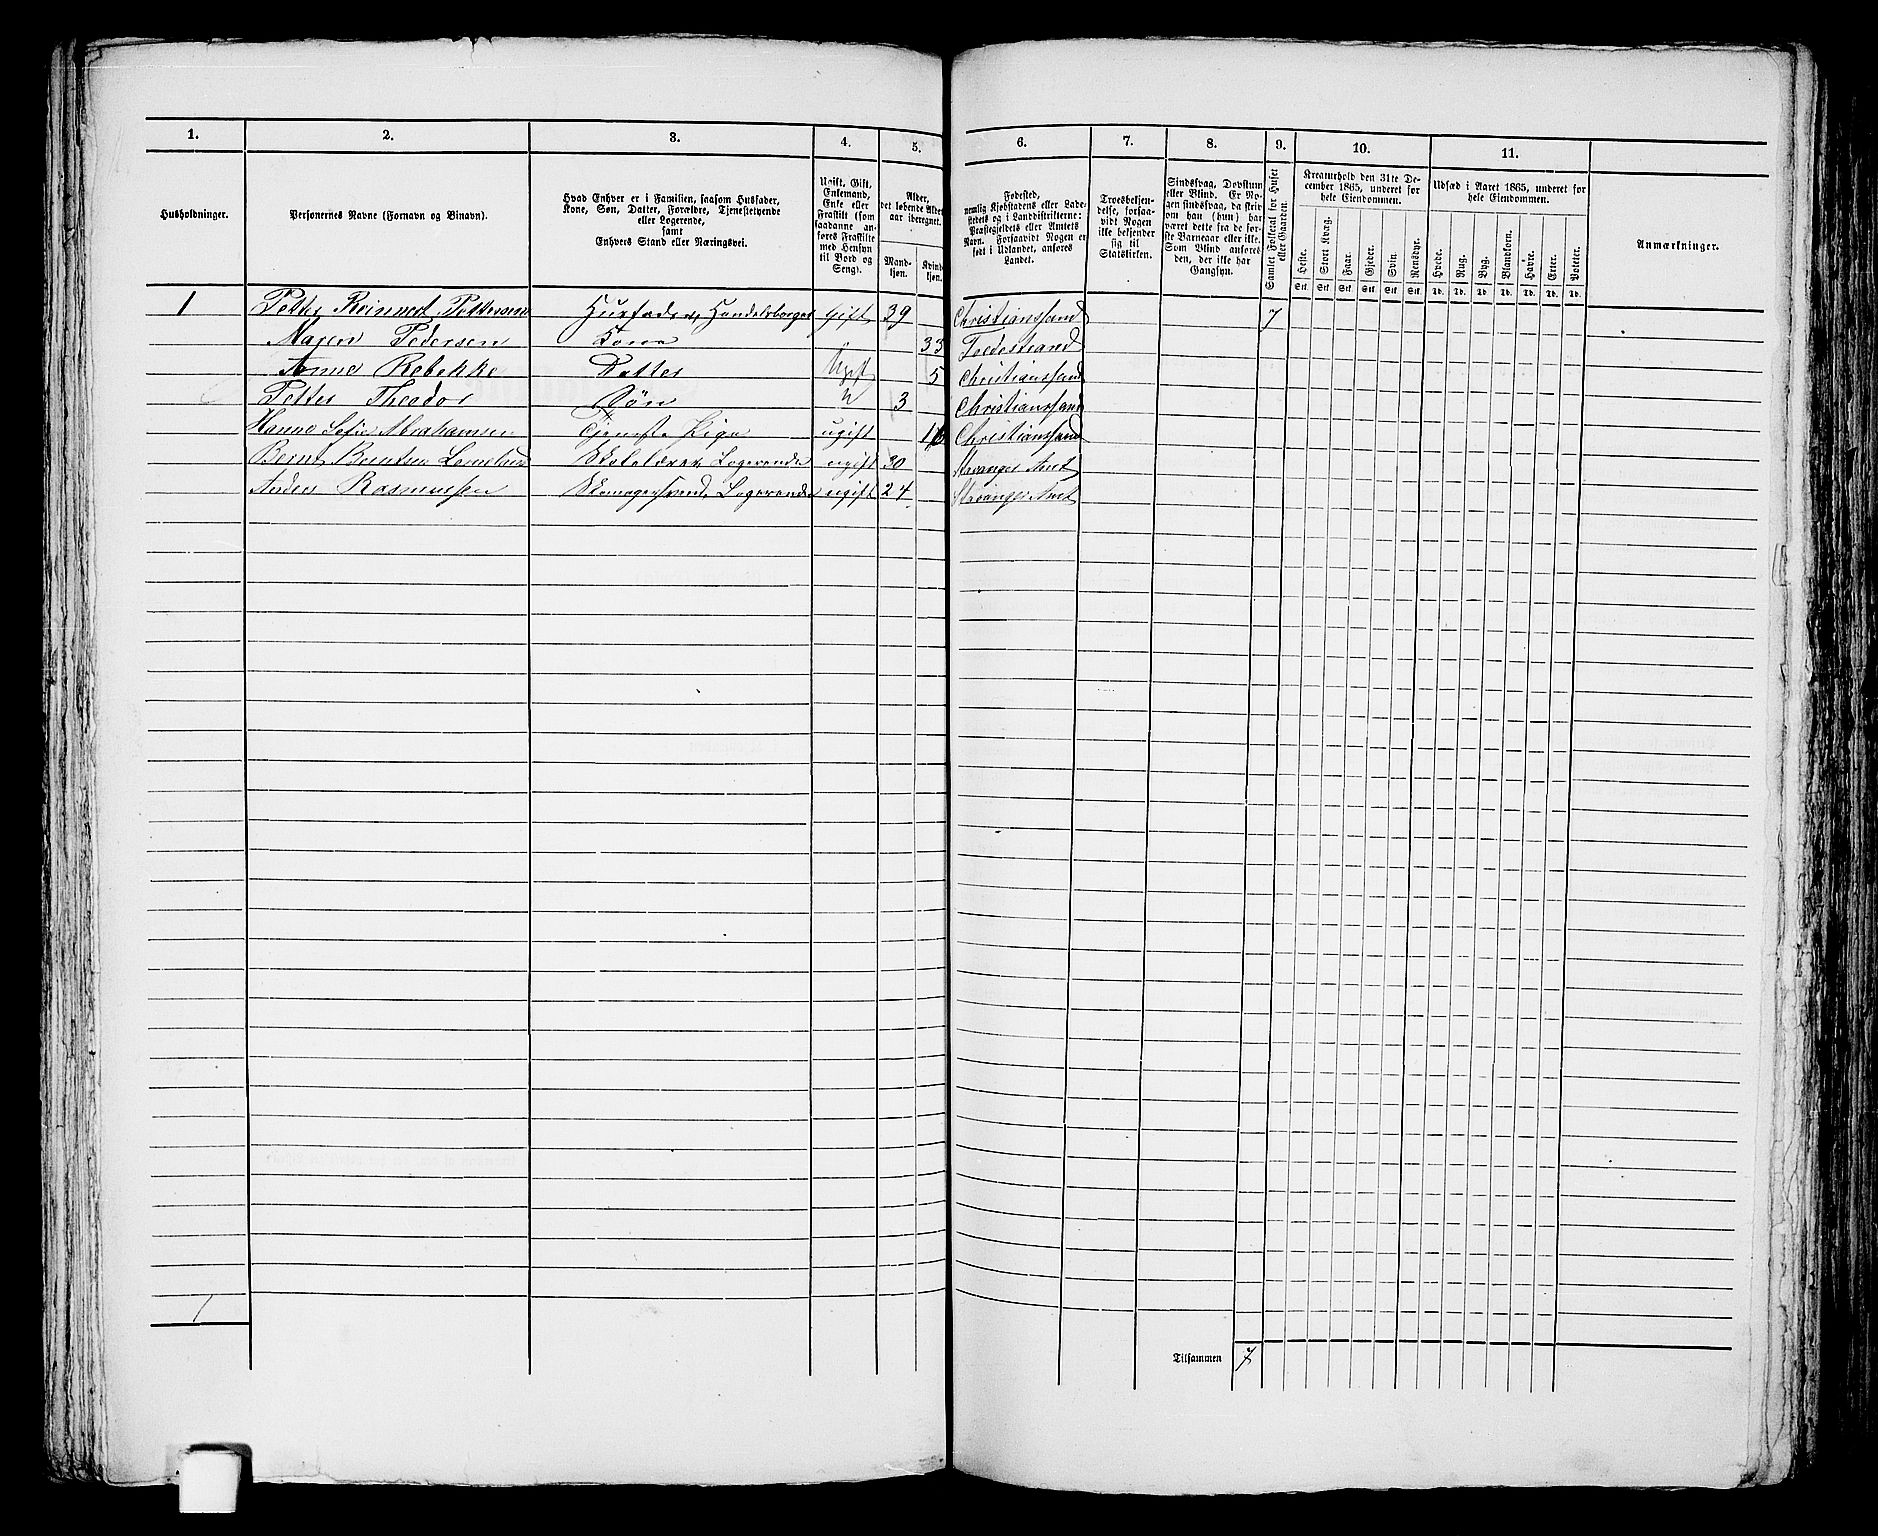 1. 2. 3. 4. 5. 6. 7. 8. 9. 10. 11.
Husholdninger.
Personernes Navne (Fornavn og Binavn).
Hvad Enhver er i Familien, saasom Husfader,
Kone, Søn, Datter, Forældre, Tjenestetyende
eller Logerende,
samt
Enhvers Stand eller Næringsvei.
Ugift, Gift,
Enkemand,
Enke eller
Fraskilt (som
saadanne an-
føres Fraskilte
med Hensyn
til Bord og
Seng).
Alder,
det løbende Alders-
aar iberegnet.
Mand-
kjøn.
Kvind-
kjøn.
Fødested,
nemlig Kjøbstadens eller Lade-
stedets og i Landdistrikterne:
Præstegjeldets eller Amtets
Navn. Forsaavidt Nogen er
født i Udlandet, anføres
Landet.
Troesbekjen-
delse, forsaa-
vidt Nogen
ikke bekjender
sig til
Statskirken.
Sindssvag, Døvstum
eller Blind. Er No-
gen sindssvag, da skriv
om han (hun) har
været dette fra de før-
ste Barneaar eller ikke.
Som Blind anføres
den, der ikke har
Gangsyn.
Samlet Folketal for Huset
eller Gaarden.
Kreaturhold den 31te De-
cember 1865, underet for
hele Eiendommen.
Heste. Stort Kvæg. Faar. Gjeder. Svin. Rensdyr.
Stk. Stk. Stk. Stk. Stk. Stk.
Udsæd i Aaret 1865, underet for
hele Eiendommen.
Hvede. Rug. Byg. Blandkorn. Havre. Erter. Poteter.
Td. Td. Td. Td. Td. Td. Td.
Anmærkninger.
1 Petter Reinert Pettersen Husfader, Handelsborger Gift 39 Christianssand 7
Maren Pedersen Kone 33 Tvedestrand
Anne Rebekke Datter Ugift 5 Christianssand
Petter Theodor Søn 3 Christianssand
Hanne Sofie Abrahamsen Tjeneste Pige ugift 16 Christianssand
Bernt Berntsen Skolelærer, Logerende ugift 30 Stavanger Amt
Anders Rasmussen Skomagersvend, Logerende ugift 24 Stavanger Amt
1
Tilsammen 7